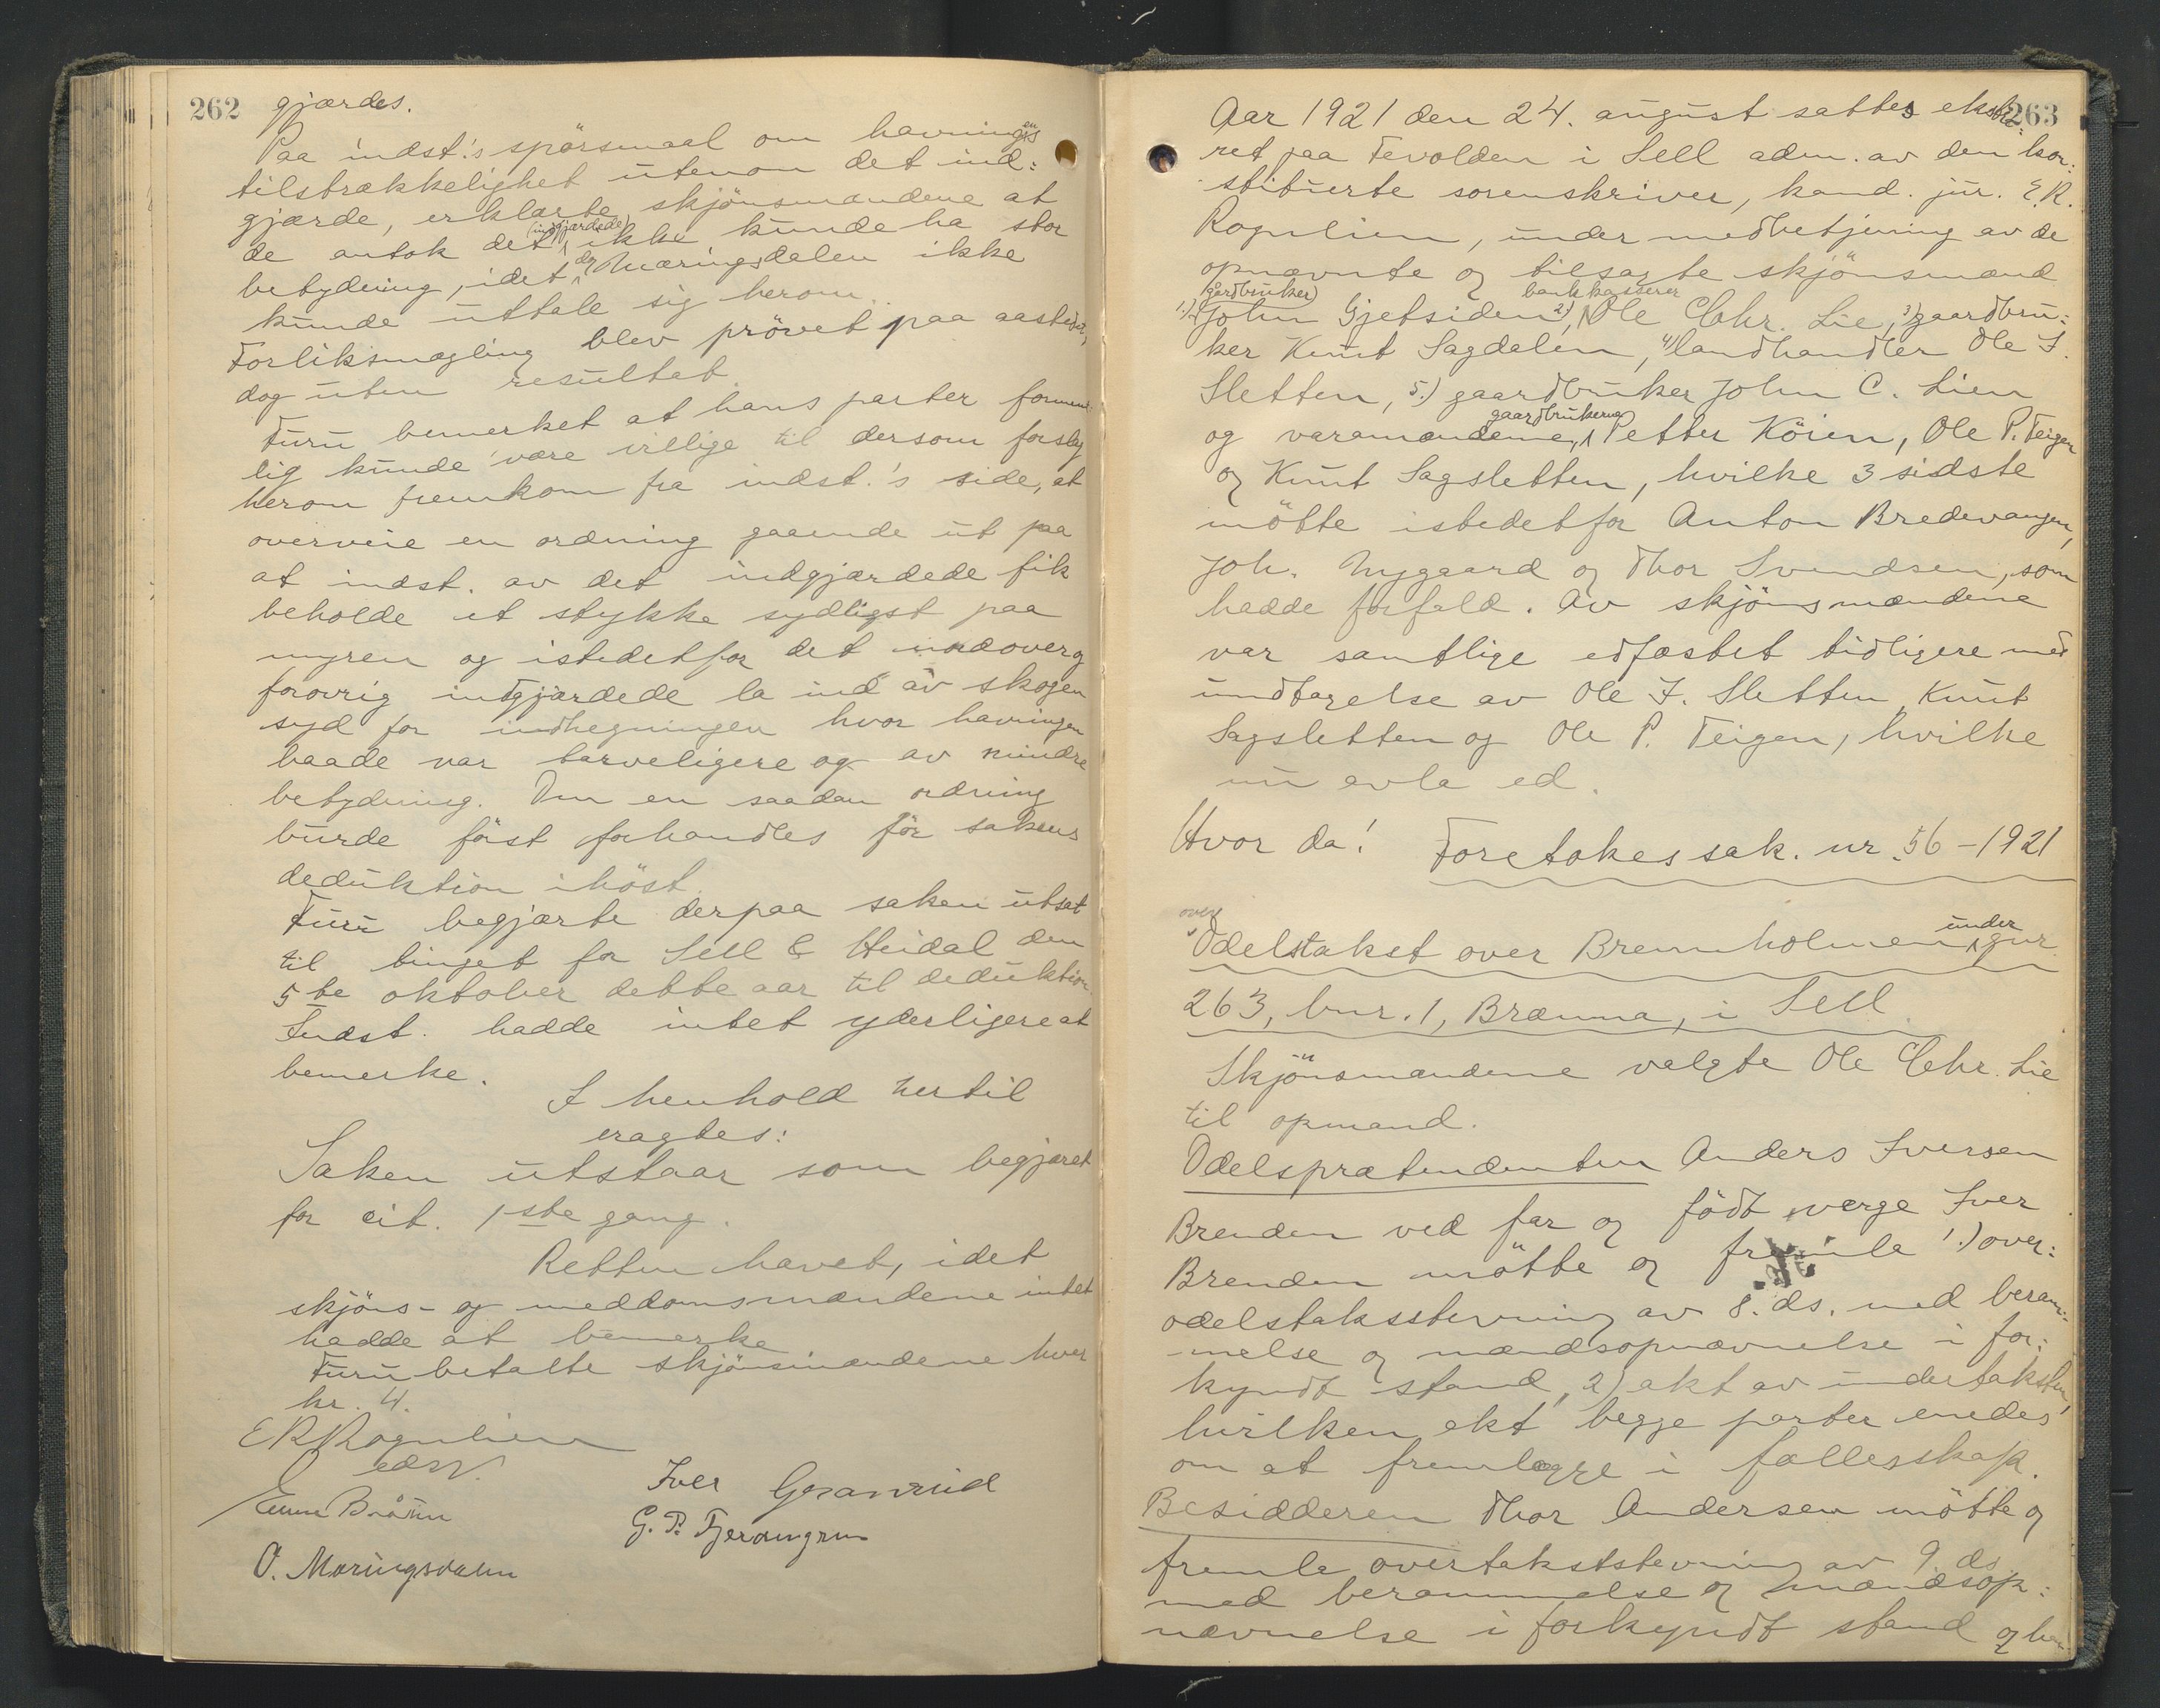 262 gjærdes.
Paa indst.'s spörsmaal om havningens
tilstrækkelighet utenom det ind:
gjærde, erklærte skjönsmændene at
de antok det (indgjærdede) ikke kunde ha stor
betydning, idet dog Mæringsdalen ikke
kunde uttale sig herom.
Forliksmægling blev prövet paa aastedet,
dog uten resultat.
Furu bemerket at hans parter forment:
lig kunde være villige til dersom forslag
herom fremkom fra indst.'s side, at
overveie en ordning gaaende ut paa
at indst. av det indgjærdede fik
beholde et stykke sydligst paa
myren og istedetfor det nordover og
forøvrig indgjærdede la ind av skogen
syd for indhegningen hvor havningen
baade var tarveligere og av mindre
betydning. Om en saadan ordning
burde först forhandles för sakens
deduktion i höst.
Furu begjærte derpaa saken utsat
til tinget for Sell & Heidal den
5te oktober dette aar til deduktion.
Indst. hadde intet yderligere at
bemerke.
I henhold hertil
eragtes:
Saken utstaar som begjæret
for cit. 1ste gang.
Retten hævet, idet
skjöns- og meddomsmændene intet
hadde at bemerke
Furu betalte skjönsmændene hver
kr. 4.
E R Rognlien
edsv.
Iver Granrud
G. P. Tjerangrun
O. Mæringsdalen
263
Aar 1921 den 24. august sattes ekstra:
ret paa Tevolden i Sell adm. av den kon:
stituerte sorenskriver, kand. jur. E.R.
Rognlien, under medbetjening av de
opnævnte og tilsagte skjönsmænd
1.) (gårdbruker) John Gjetsiden 2), bankkasserer Ole Chr. Lie, 3) gaardbru:
ker Knut Sagdalen, 4) landhandler Ole J.
Sletten, 5.) gaardbruker John C. Lien
og varamændene, gaardbrukerne Petter Köien, Ole P. Teigen
og Knut Sagsletten, hvilke 3 sidste
mötte istedetfor Anton Bredevangen,
Joh. Nygaard og Thor Svendsen, som
hadde forfald. Av skjönsmændene
var samtlige edfæstet tidligere med
undtagelse av Ole J. Sletten, Knut
Sagsletten og Ole P. Teigen, hvilke
nu avla ed.
Hvor da! Foretokes sak. nr. 56 - 1921
over
Odelstakst over Bremholmen under gnr.
263, bnr. 1, Brænna, i Sell.
Skjönsmændene valgte Ole Chr. Lie
til opmand.
Odelsprætendenten Anders Iversen
Brenden ved far og födt verge Iver
Brenden mötte og fremla 1.) over:
odelstakststevning av 8. ds. med beram:
melse og mændsopnævnelse i for:
kyndt stand, 2) akt av undertaksten,
hvilken akt begge parter enedes
om at fremlægge i fællesskap.
Besidderen Thor Andersen mötte og
fremla overtakststevning av 9. ds.
med berammelse og mændsop:
nævnelse i forkyndt stand og